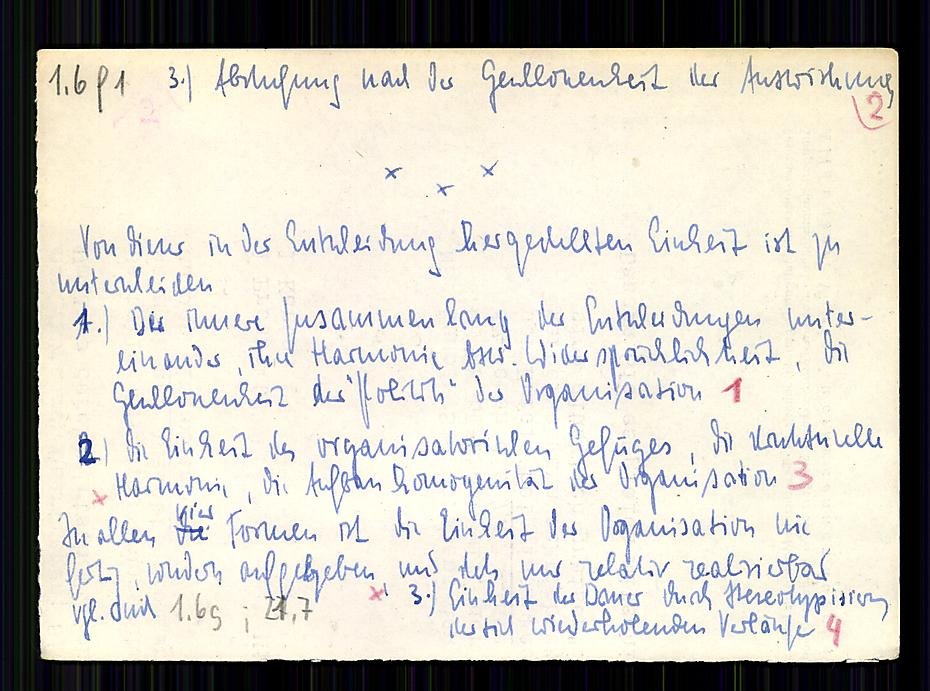 1.6 f 1 3.) Abstufung nach der Geschlossenheit der Auswirkung
2
x x x
Von dieser in der Entscheidung hergestellten Einheit ist zu
unterscheiden
1.) Der innere Zusammenhang der Entscheidungen unter-
einander, ihre Harmonie bzw. Widersprüchlichkeit, die
Geschlossenheit der "Politik" der Organisation 1
2.) die Einheit des organisatorischen Gefüges, die strukturelle
x Harmonie, die Aufbauhomogenität der Organisation 3
In allen vier Formen ist die Einheit der Organisation nie
fertig, sondern aufgegeben und stets nur relativ realisierbar
vgl. auch 1.6g ; 21,7
x 3.) Einheit der Dauer durch Stereotypisierung
der sich wiederholenden Verläufe 4